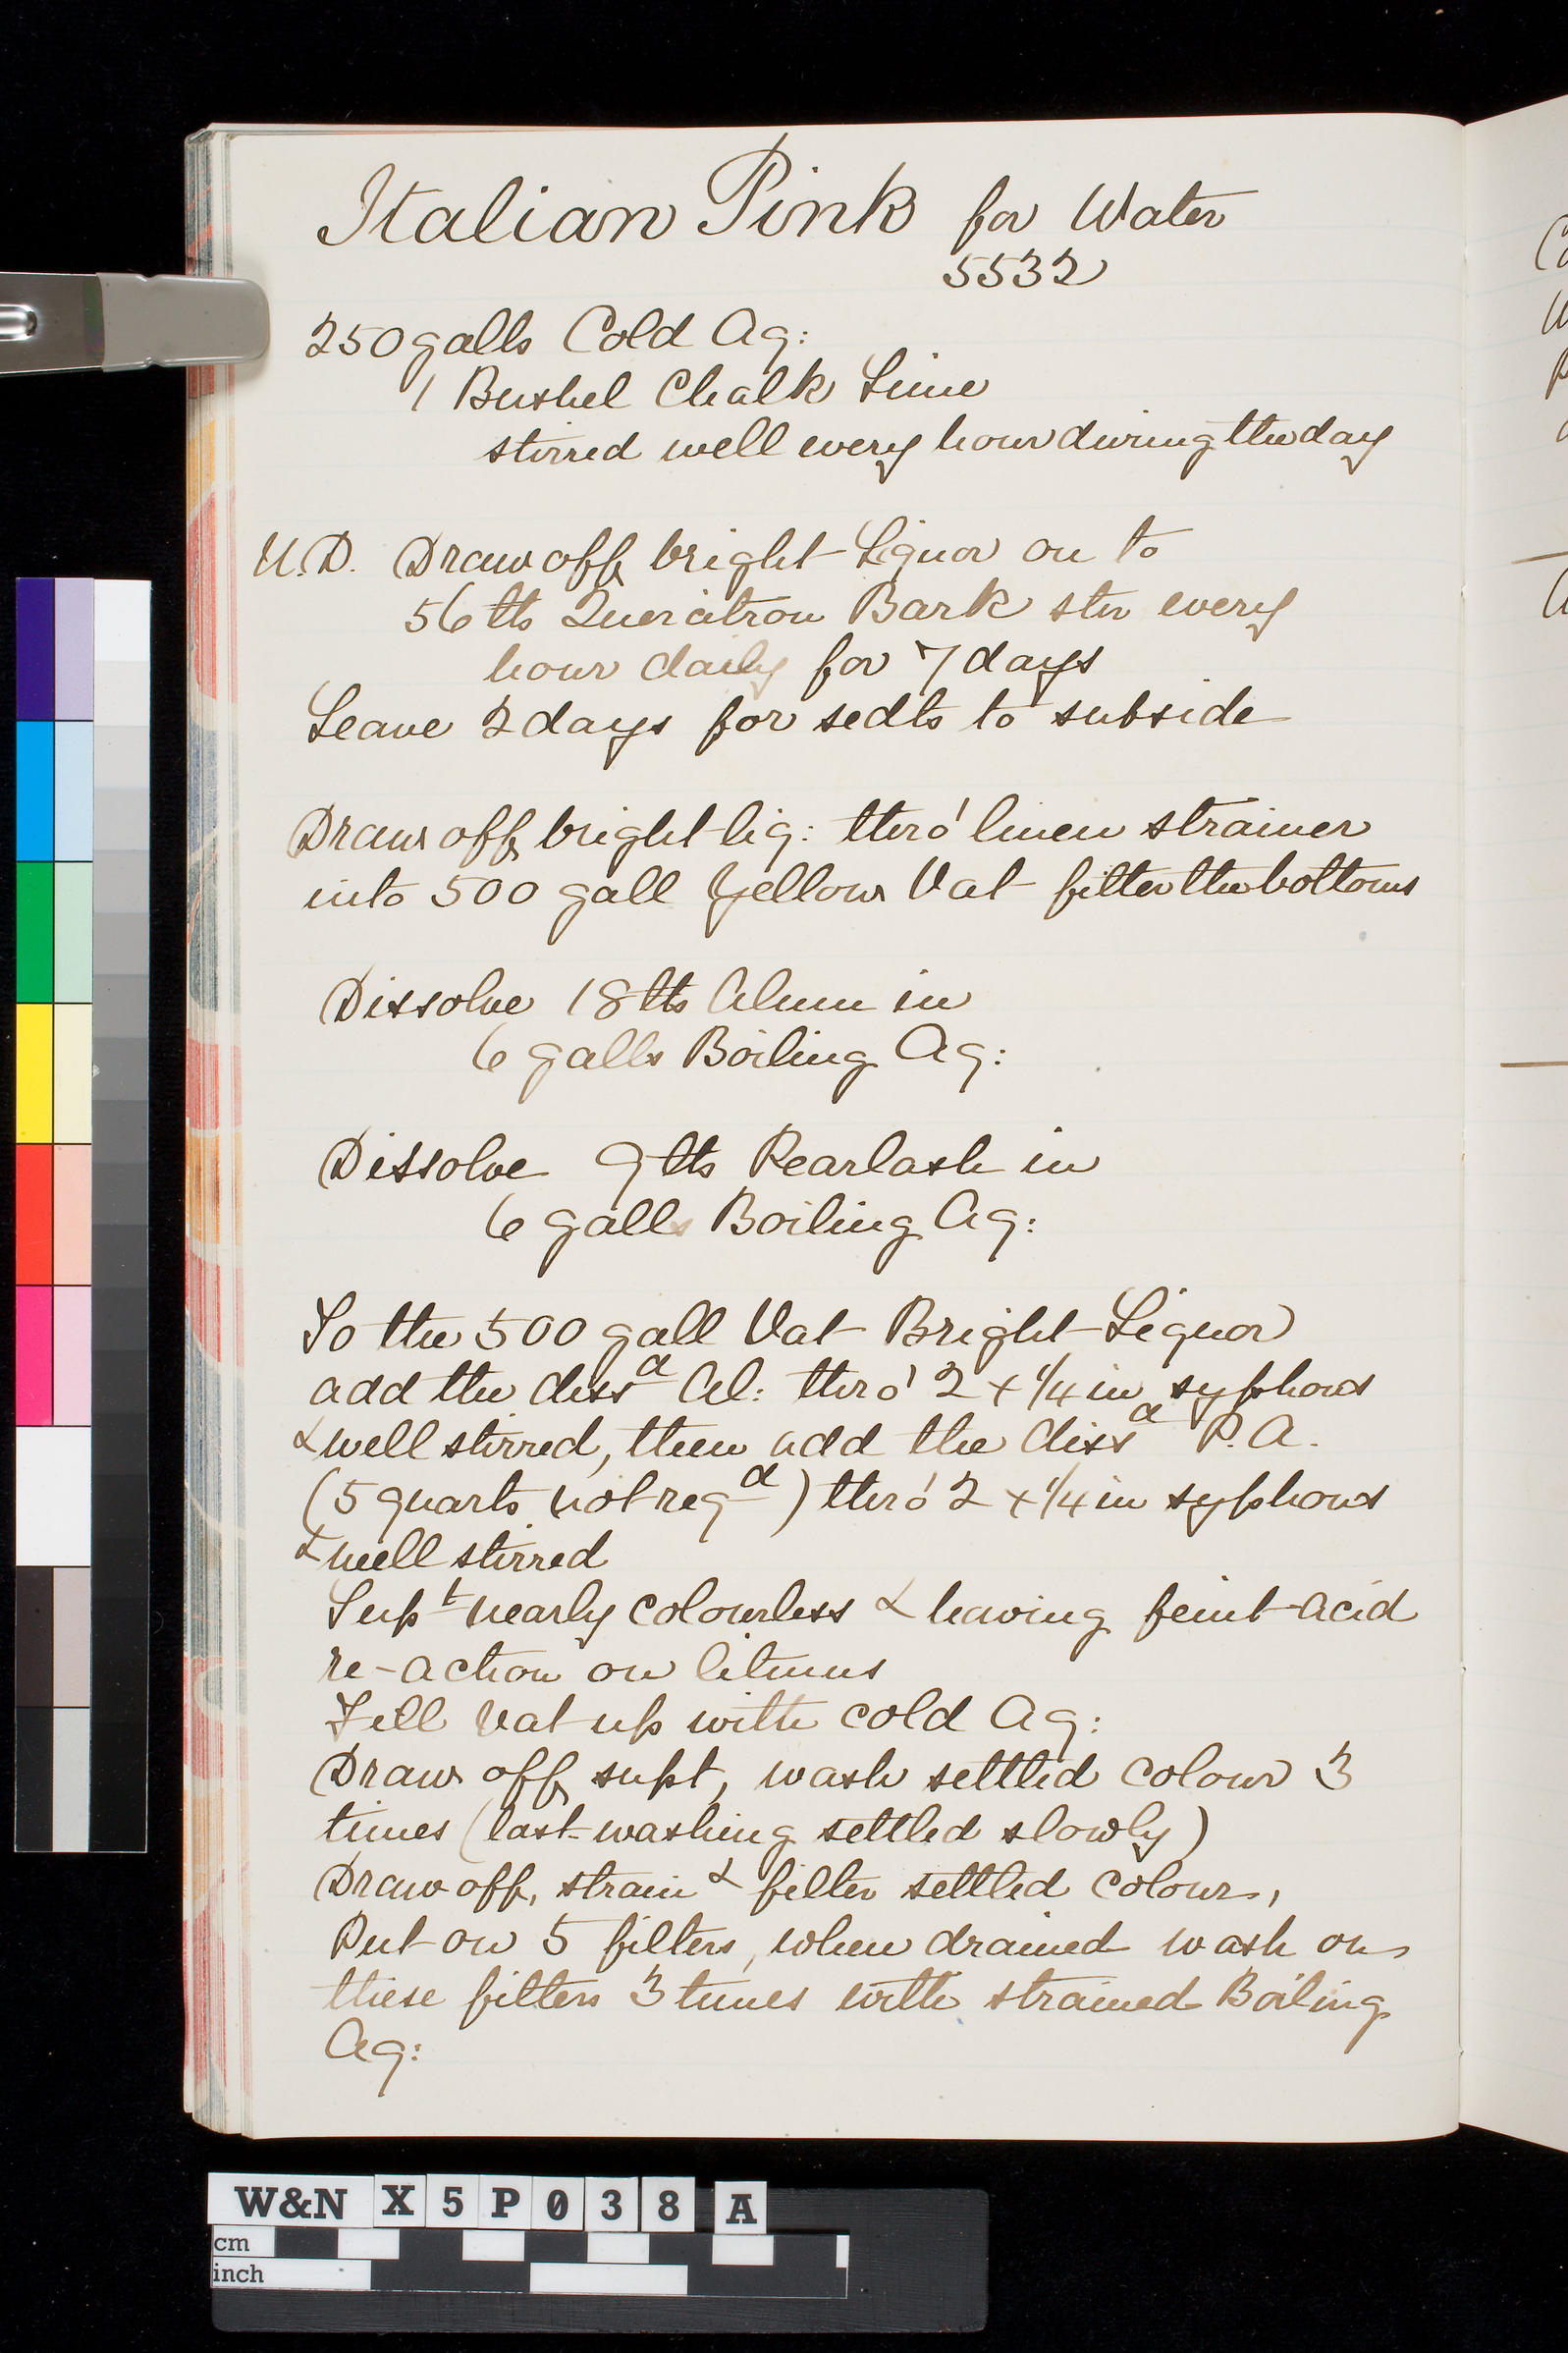 Italian Pink for Water
5532
250 galls Cold Aq:
1 Bushel Chalk Lime
stirred well every hour during the day
N.D. Draw off bright Liquor on to
56 lbs Quercitron Bark stir every
hour daily for 7 days
Leave 2 days for sedts to subside
Draw off bright liq: thro' linen strainer
into 500 gall Yellow Vat filter the bottoms
Dissolve 18 lbs Alum in
6 galls Boiling Aq:
Dissolve 9 lbs Pearlash in
6 galls Boiling Aq:
To the 500 gall Vat Bright Liquor
add the dissd Al: thro' 2 x 1/4 in syphons
& well stirred, then add the dissd P.A.
(5 quarts not reqd) thro' 2 x 1/4 in syphons
& well stirred
Supt nearly colourless & having feint acid
re-action on litmus
Fill Vat up with cold Aq:
Draw off supt, wash settled colour 3
times (last washing settled slowly)
Draw off, strain & filter settled colour,
Put on 5 filters, when drained wash on
these filters 3 times with strained Boiling
Aq:
W&N X5P038 A
cm
inch